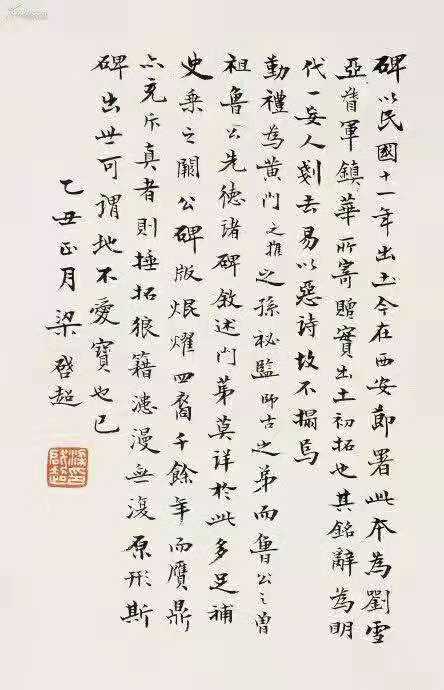 碑以民國十一年出土今在西安節署此本為劉雪
亞督軍鎮華所寄贈實出土初拓也其銘辭為明
代一妄人剗去易以惡詩故不搨焉
勤禮為黃門之推之孫祕監師古之弟而魯公之曾
祖魯公先德諸碑敘述門第莫詳於此多足補
史乘之闕公碑版焜燿四裔千餘年而贋鼎
亦充斥真者則捶拓狼籍漶漫無復原形斯
碑出世可謂地不愛寶也已
乙丑正月梁啓超